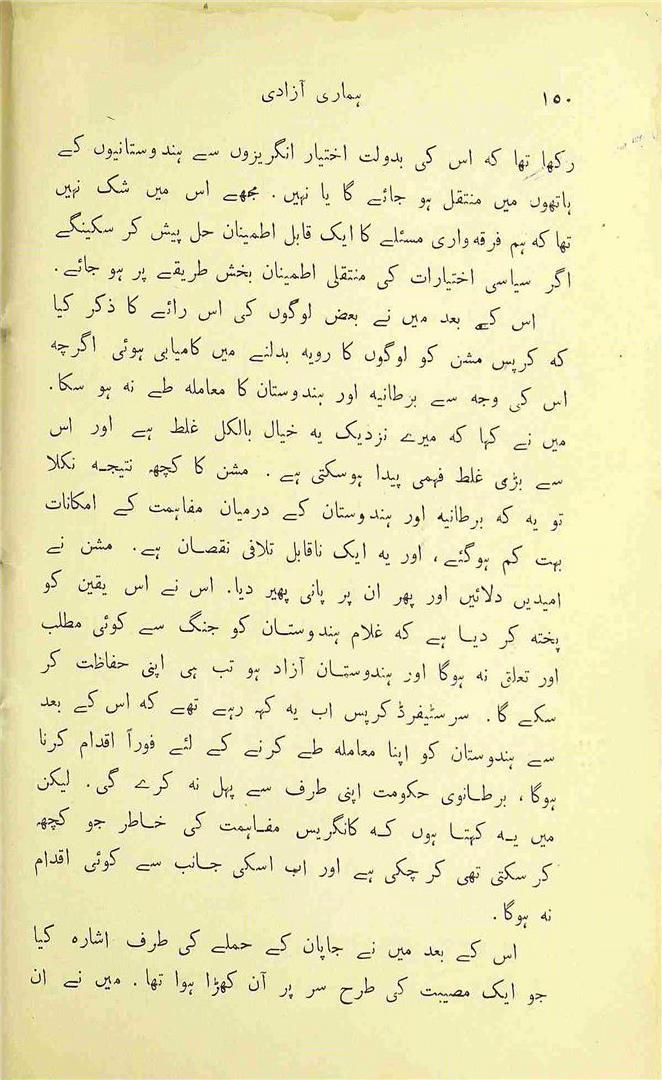 ۱۵۰ ہماری آزادی
رکھا تھا کہ اس کی بدولت اختیار انگریزوں سے ہندوستانیوں کے
ہاتھوں میں منتقل ہو جائے گا یا نہیں ۔ مجھے اس میں شک نہیں
تھا کہ ہم فرقہ واری مسئلے کا ایک قابل اطمینان حل پیش کر سکینگے
اگر سیاسی اختیارات کی منتقلی اطمینان بخش طریقے پر ہو جائے ۔
اس کے بعد میں نے بعض لوگوں کی اس رائے کا ذکر کیا
کہ کرپس مشن کو لوگوں کا رویہ بدلنے میں کامیابی ہوئی اگرچہ
اس کی وجہ سے برطانیہ اور ہندوستان کا معاملہ طے نہ ہو سکا ۔
میں نے کہا کہ میرے نزدیک یہ خیال بالکل غلط ہے اور اس
سے بڑی غلط فہمی پیدا ہوسکتی ہے ۔ مشن کا کچھ نتیجہ نکلا
تو یہ کہ برطانیہ اور ہندوستان کے درمیان مفاہمت کے امکانات
بہت کم ہوگئے ، اور یہ ایک ناقابل تلافی نقصان ہے ۔ مشن نے
امیدیں دلائیں اور پھر ان پر پانی پھیر دیا ۔ اس نے اس یقین کو
پختہ کر دیا ہے کہ غلام ہندوستان کو جنگ سے کوئی مطلب
اور تعلق نہ ہوگا اور ہندوستان آزاد ہو تب ہی اپنی حفاظت کر
سکے گا ۔ سر سٹیفرڈ کرپس اب یہ کہہ رہے تھے کہ اس کے بعد
سے ہندوستان کو اپنا معاملہ طے کرنے کے لئے فوراً اقدام کرنا
ہوگا ، برطانوی حکومت اپنی طرف سے پہل نہ کرے گی ۔ لیکن
میں یہ کہتا ہوں کہ کانگریس مفاہمت کی خاطر جو کچھ
کر سکتی تھی کر چکی ہے اور اب اسکی جانب سے کوئی اقدام
نہ ہوگا ۔
اس کے بعد میں نے جاپان کے حملے کی طرف اشارہ کیا
جو ایک مصیبت کی طرح سر پر آن کھڑا ہوا تھا ۔ میں نے ان